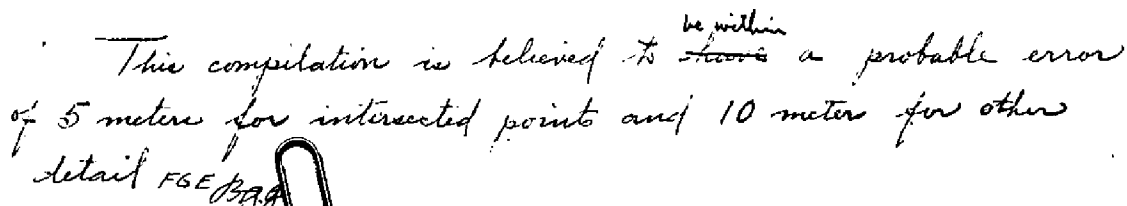 This compilation is believed to be within a probable error
of 5 meters for intersected points and 10 meter for other
detail FGE